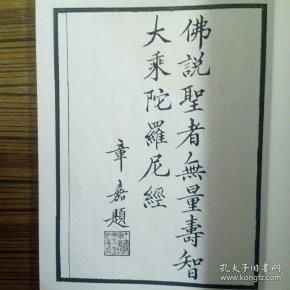 佛說聖者無量壽智
大乘陀羅尼經
章嘉題
孔夫子旧书网